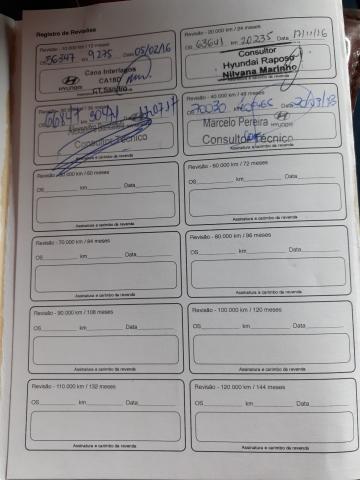 Registro de Revisões
Revisão - 10.000 km / 12 meses
OS 56347 km 9275 Data 05/02/16
HYUNDAI
Caoa Interlagos
CA18D
Assinatura e carimbo da revenda
Revisão - 20.000 km / 24 meses
OS 63641 km 20235 Data 17/11/16
Consultor
Hyundai Raposo
Nilvana Marinho
Revisão - 30.000 km / 36 meses
OS 66847 km Data
Consultor Técnico
Revisão - 40.000 km / 48 meses
OS 70030 km Data
Marcelo Pereira HYUNDAI
Consultor Técnico
Assinatura e carimbo da revenda
Revisão - 50.000 km / 60 meses
OS km Data
Assinatura e carimbo da revenda
Revisão - 60.000 km / 72 meses
OS km Data
Assinatura e carimbo da revenda
Revisão - 70.000 km / 84 meses
OS km Data
Assinatura e carimbo da revenda
Revisão - 80.000 km / 96 meses
OS km Data
Assinatura e carimbo da revenda
Revisão - 90.000 km / 108 meses
OS km Data
Assinatura e carimbo da revenda
Revisão - 100.000 km / 120 meses
OS km Data
Assinatura e carimbo da revenda
Revisão - 110.000 km / 132 meses
OS km Data
Assinatura e carimbo da revenda
Revisão - 120.000 km / 144 meses
OS km Data
Assinatura e carimbo da revenda